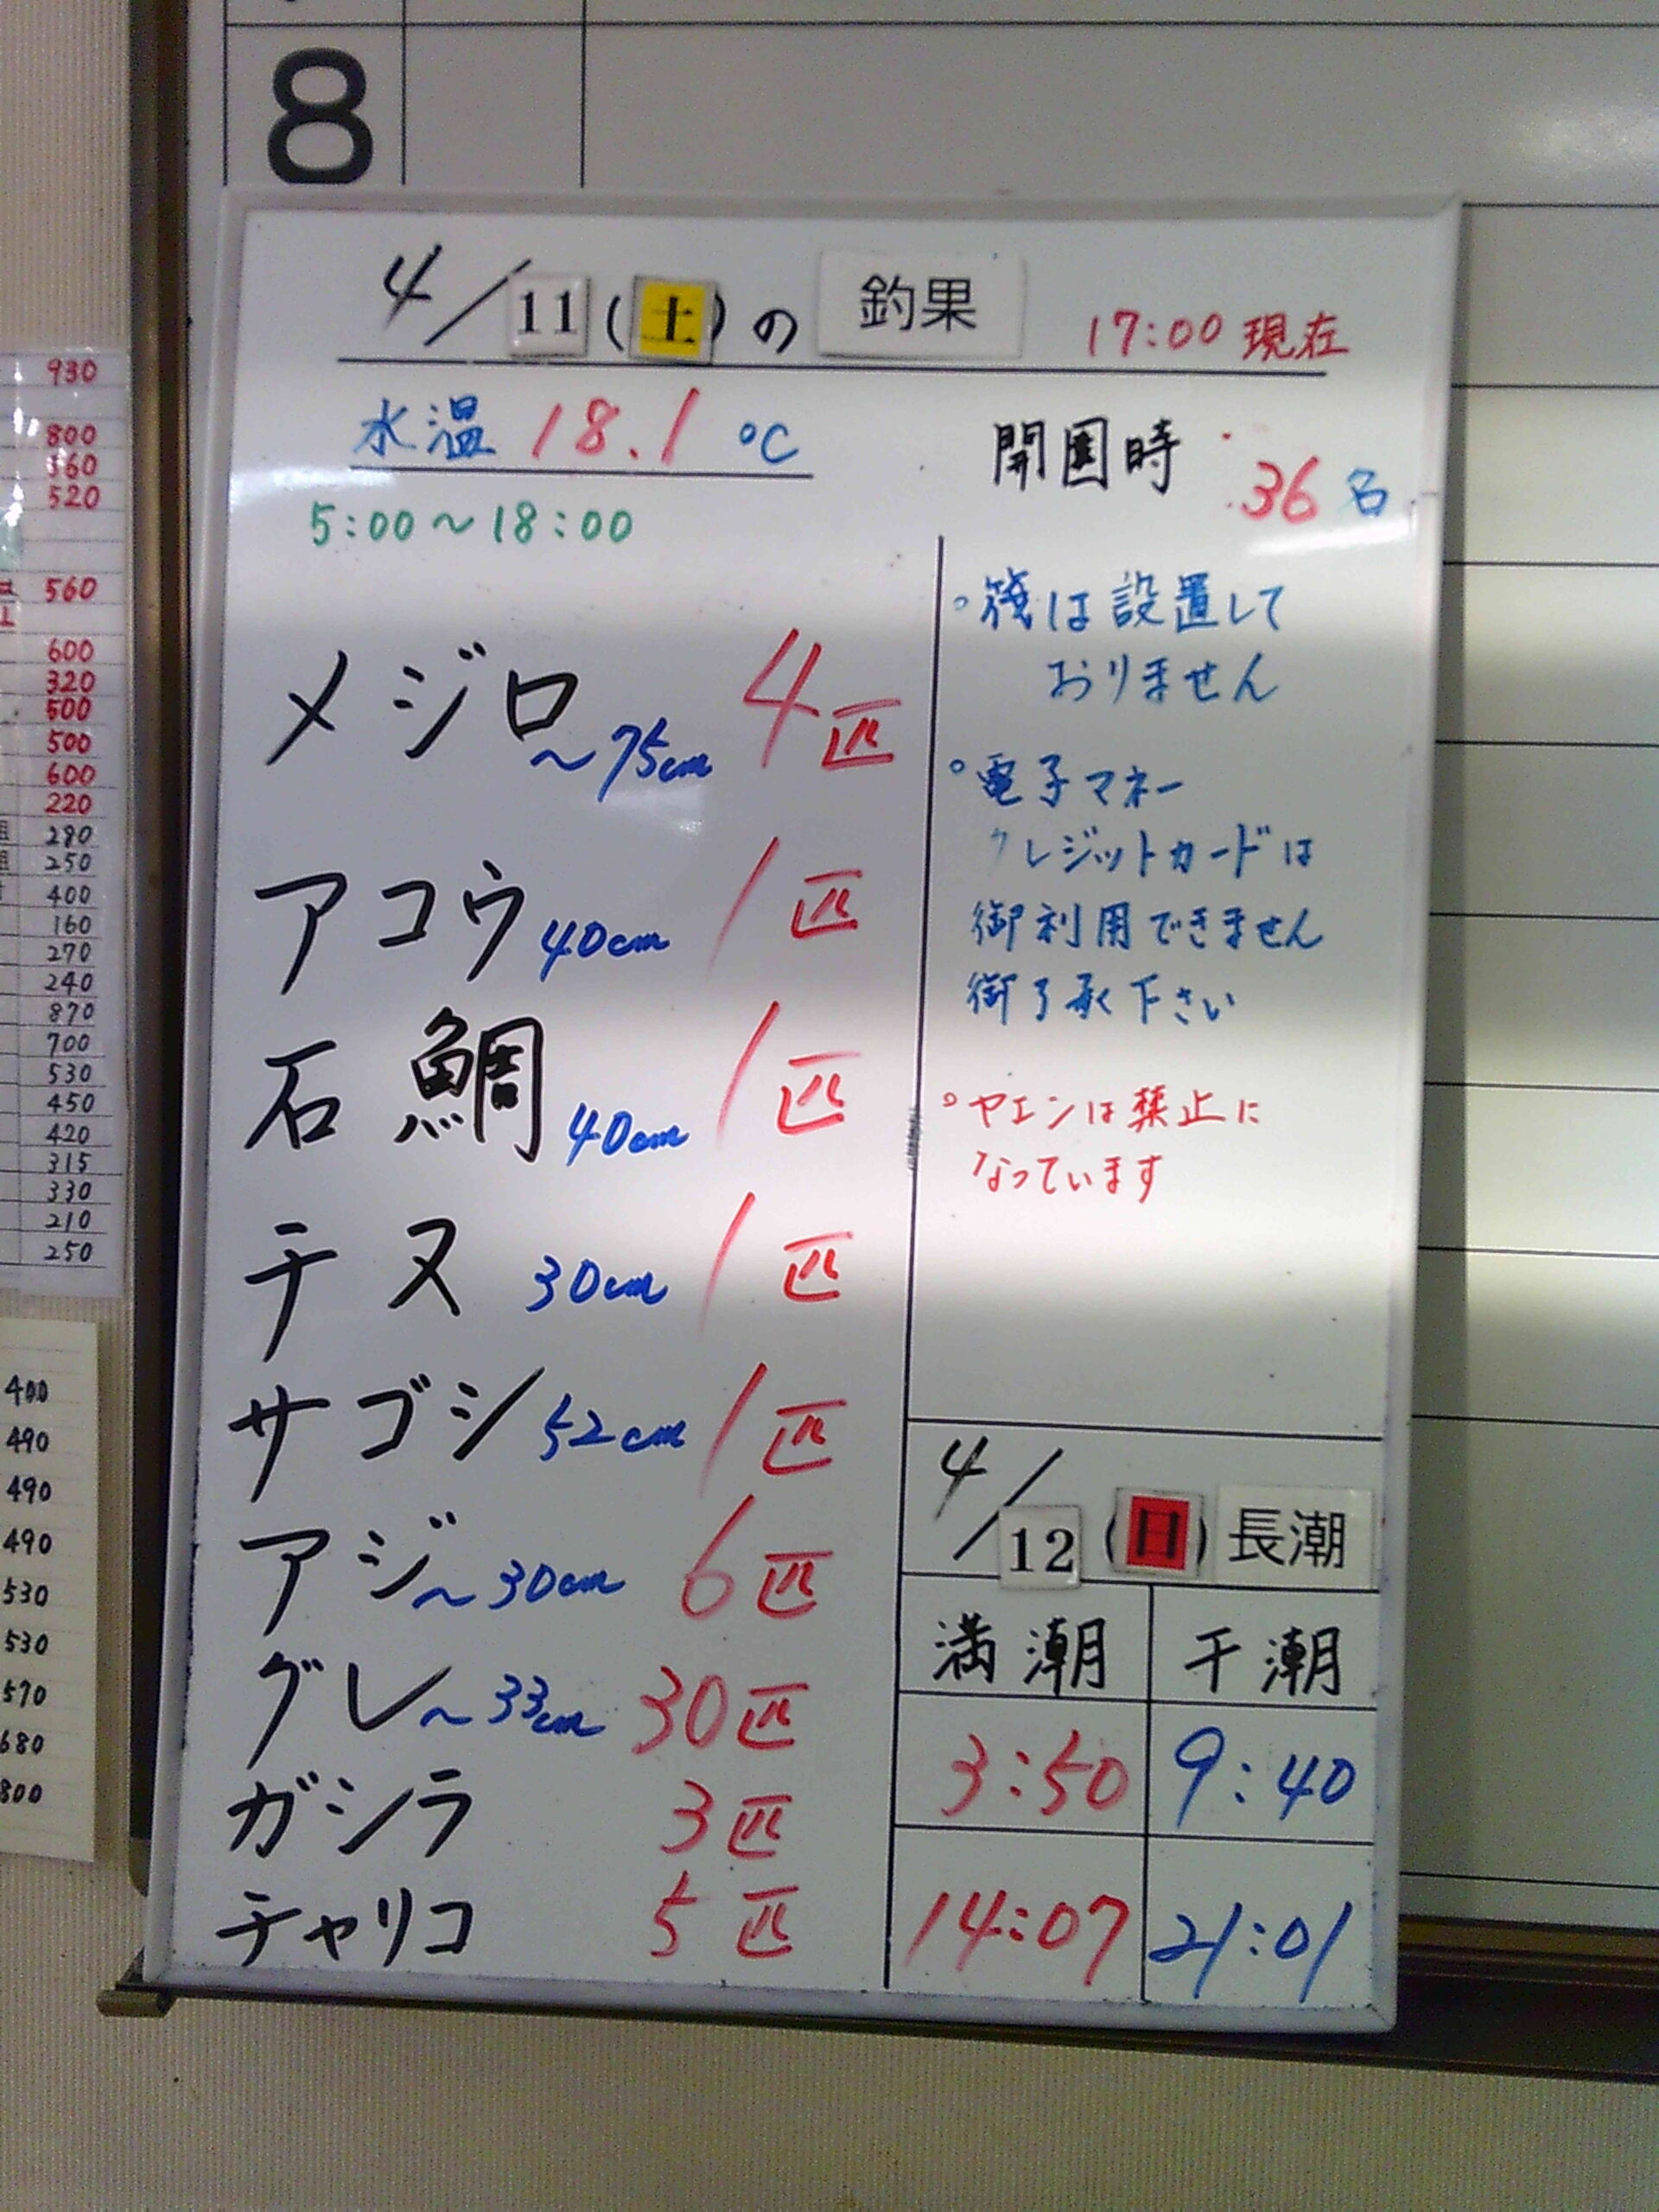 8
4/11(土)の 釣果 17:00 現在
水温 18.1 ℃
開園時 36名
5:00～18:00
メジロ ～75cm 4匹
アコウ 40cm 1匹
石鯛 40cm 1匹
チヌ 30cm 1匹
サゴシ 52cm 1匹
アジ ～30cm 6匹
グレ ～33cm 30匹
ガシラ 3匹
チャリコ 5匹
。筏は設置して
おりません
。電子マネー
クレジットカードは
御利用できません
御了承く下さい
。ヤエンは禁止に
なっています
4/12(日)長潮
満潮 干潮
3:50 9:40
14:07 21:01
930
800
360
520
560
600
320
500
500
600
220
280
250
400
160
270
240
870
700
530
450
420
315
330
210
250
400
490
490
490
530
530
570
680
800